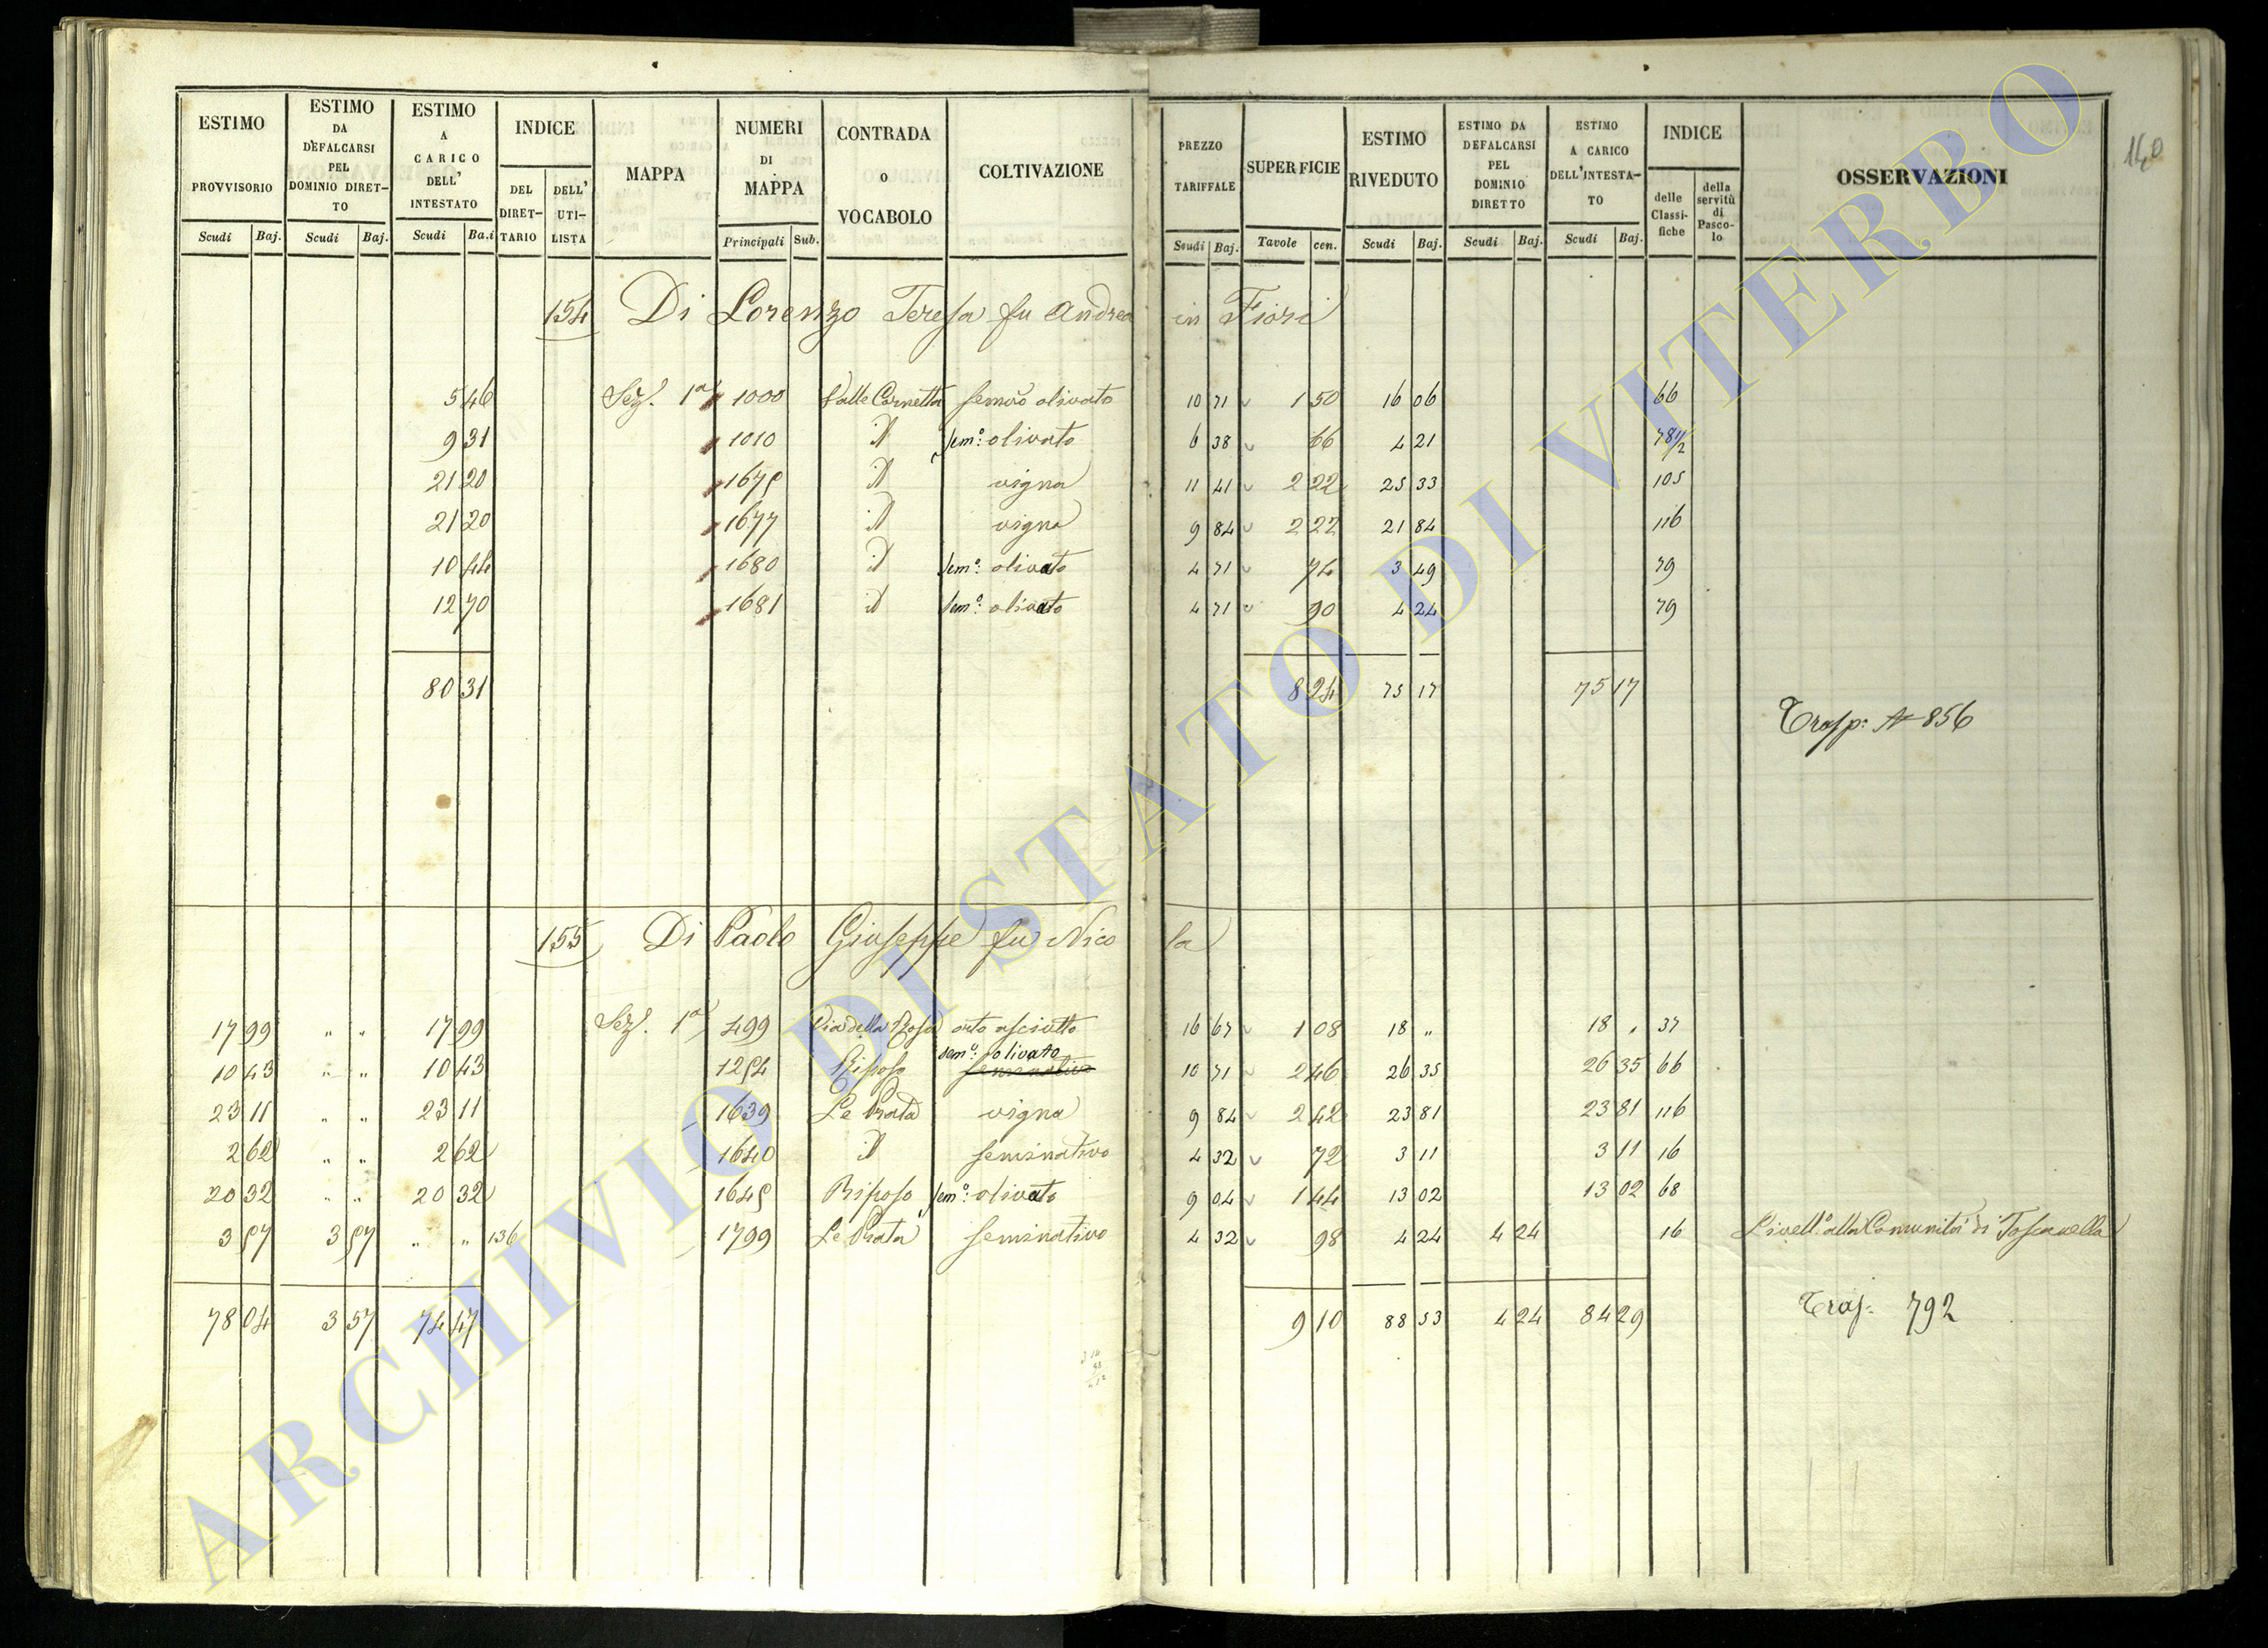 ESTIMO PROVVISORIO Scudi Baj.
ESTIMO DA DEFALCARSI PEL DOMINIO DIRET-TO Scudi Baj.
ESTIMO A CARICO DELL' INTESTATO Scudi Ba.i
INDICE DEL DIRET-TARIO DELL' UTI-LISTA
MAPPA
NUMERI DI MAPPA Principali Sub.
CONTRADA O VOCABOLO
COLTIVAZIONE
PREZZO TARIFFALE Scudi Baj.
SUPERFICIE Tavole cen.
ESTIMO RIVEDUTO Scudi Baj.
ESTIMO DA DEFALCARSI PEL DOMINIO DIRETTO Scudi Baj.
ESTIMO A CARICO DELL'INTESTA-TO Scudi Baj.
INDICE delle Classi-fiche della servitù di Pasco-lo
OSSERVAZIONI
140
154 Di Lorenzo Teresa fu Andrea in Fiori
5 46 Sez. 1a 1000 Valle Cornetta semo olivato 10 71 1 50 16 06 66
9 31 1010 id semo: olivato 6 38 66 4 21 78 1/2
21 20 1675 id vigna 11 41 2 22 25 33 105
21 20 1677 id vigna 9 84 2 22 21 84 116
10 44 1680 id semo: olivato 4 71 74 3 49 79
12 70 1681 id semo: olivato 4 71 90 4 24 79
80 31 8 24 75 17 75 17
Trasp: N 856
155 Di Paolo Giuseppe fu Nicola
17 99 " " 17 99 Sez. 1a 499 Via della Rosa orto asciutto 16 67 1 08 18 " 18 " 37
10 43 " " 10 43 1254 Riposo semo: olivato seminativo 10 71 2 46 26 35 26 35 66
23 11 " " 23 11 1639 Le Prata vigna 9 84 2 42 23 81 23 81 116
2 62 " " 2 62 1640 id seminativo 4 32 72 3 11 3 11 16
20 32 " " 20 32 1645 Riposo semo: olivato 9 04 1 44 13 02 13 02 68
3 57 3 57 " " 136 1799 Le Prata seminativo 4 32 98 4 24 4 24 16 Livello alla Comunità di Toscanella
78 04 3 57 74 47 9 10 88 53 4 24 84 29
Tras: 792
ARCHIVIO DI STATO DI VITERBO